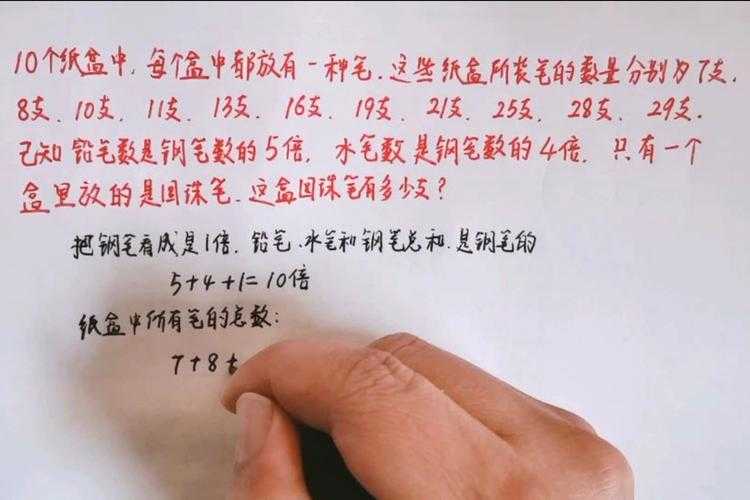 10个纸盒中，每个盒中都放有一种笔．这些纸盒所装笔的数量分别为7支、
8支、10支、11支、13支、16支、19支、21支、25支、28支、29支．
已知铅笔数是钢笔数的5倍，水笔数是钢笔数的4倍．只有一个
盒里放的是圆珠笔．这盒圆珠笔有多少支？
把钢笔看成是1倍．铅笔、水笔和钢笔总和．是钢笔的
5+4+1=10倍
纸盒中所有笔的总数：
7+8+